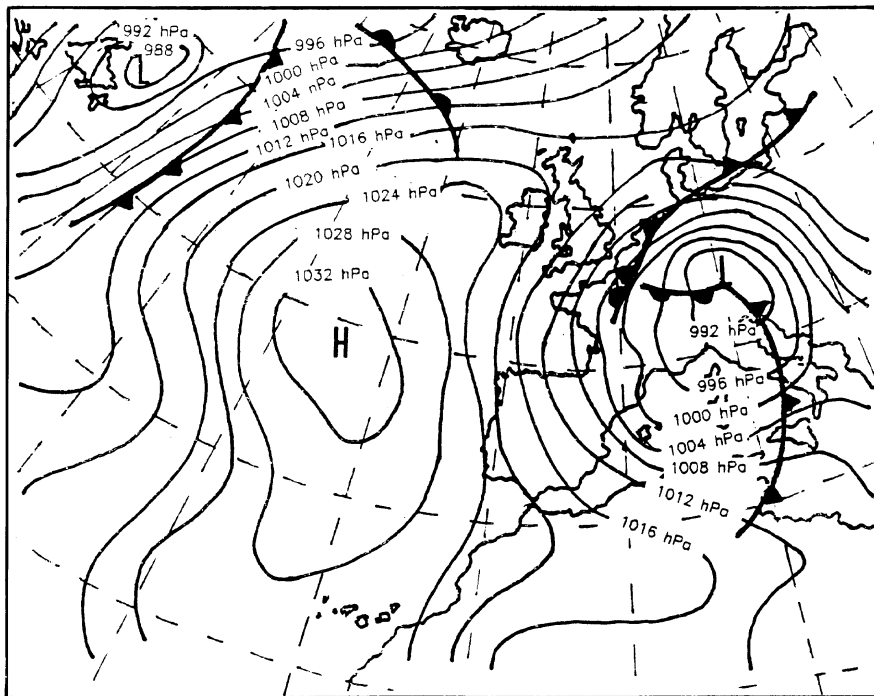 992 hPa
988
L
996 hPa
1000 hPa
1004 hPa
1008 hPa
1012 hPa
1016 hPa
1020 hPa
1024 hPa
1028 hPa
1032 hPa
H
L
992 hPa
996 hPa
1000 hPa
1004 hPa
1008 hPa
1012 hPa
1016 hPa